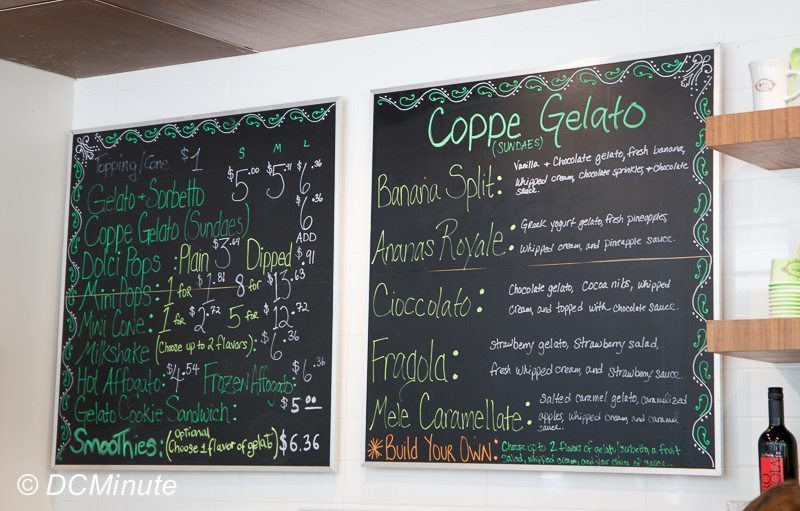 Topping/Cone $1 S M L
Gelato + Sorbetto $5.00 $5.91 $6.36
Coppe Gelato (Sundaes) $6.36
Dolci Pops: Plain $3.64 Dipped ADD $.91
Mini Pops: 1 for $1.81 8 for $13.63
Mini Cone: 1 for $2.72 5 for $12.72
Milkshake (Choose up to 2 flavors): $6.36
Hot Affogato: $4.54 Frozen Affogato: $6.36
Gelato Cookie Sandwich: $5.00
Smoothies: (Optional
(Choose 1 flavor of gelato) $6.36
Coppe Gelato
(SUNDAES)
Banana Split: Vanilla + Chocolate gelato, fresh banana,
whipped cream, chocolate sprinkles, + chocolate
sauce.
Ananas Royale: Greek yogurt gelato, fresh pineapples,
whipped cream, and pineapple sauce.
Cioccolato: Chocolate gelato, cocoa nibs, whipped
cream, and topped with chocolate sauce.
Fragola: strawberry gelato, strawberry salad,
fresh whipped cream, and strawberry sauce.
Mele Caramellate: Salted caramel gelato, caramelized
apples, whipped cream, and caramel
sauce.
*Build Your Own: Choose up to 2 flavors of gelato/sorbetto, a fruit
salad, whipped cream, and your choice of sauce...
© DCMinute